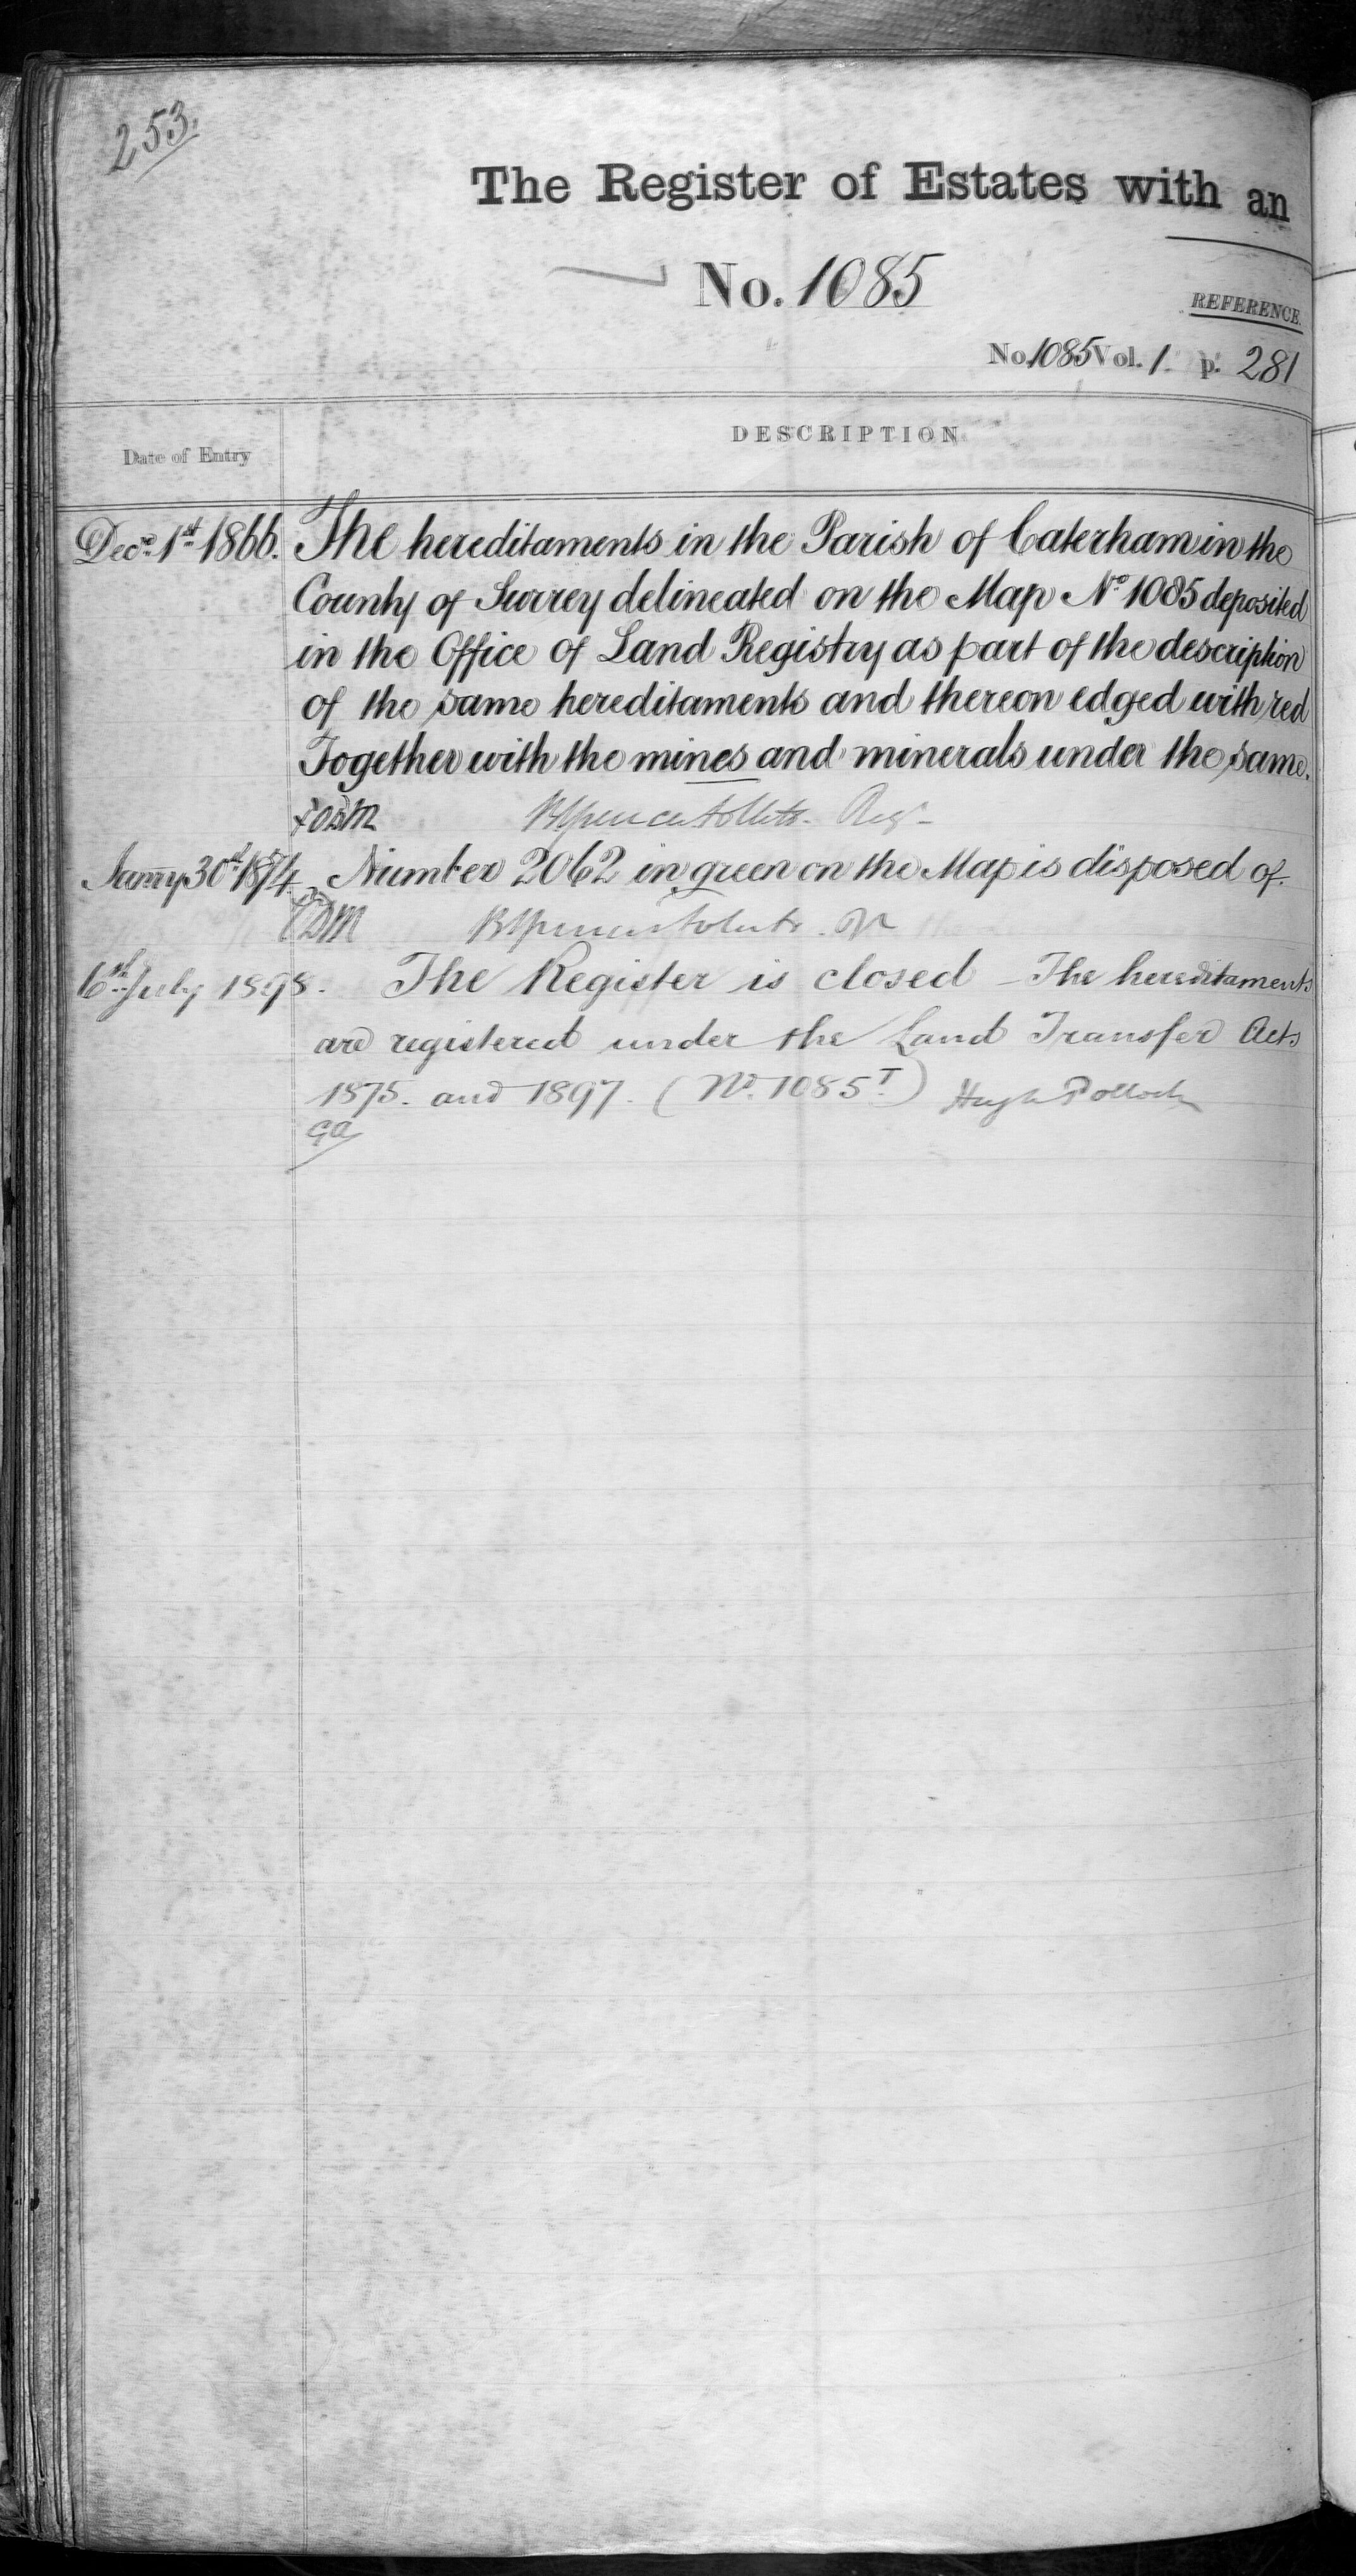 253.
The Register of Estates with an
No. 1085
REFERENCE
No. 1085 Vol. 1. p. 281
Date of Entry
DESCRIPTION
Decr. 1st 1866. The hereditaments in the Parish of Caterham in the
County of Surrey delineated on the Map No. 1085 deposited
in the Office of Land Registry as part of the description
of the same hereditaments and thereon edged with red
Together with the mines and minerals under the same.
Regr
Janry 30th 1874. Number 2062 in green on the Map is disposed of.
DM
6th July 1898. The Register is closed – The hereditaments
are registered under the Land Transfer Acts
1875. and 1897. (No. 1085T) Hugh Pollock
GA